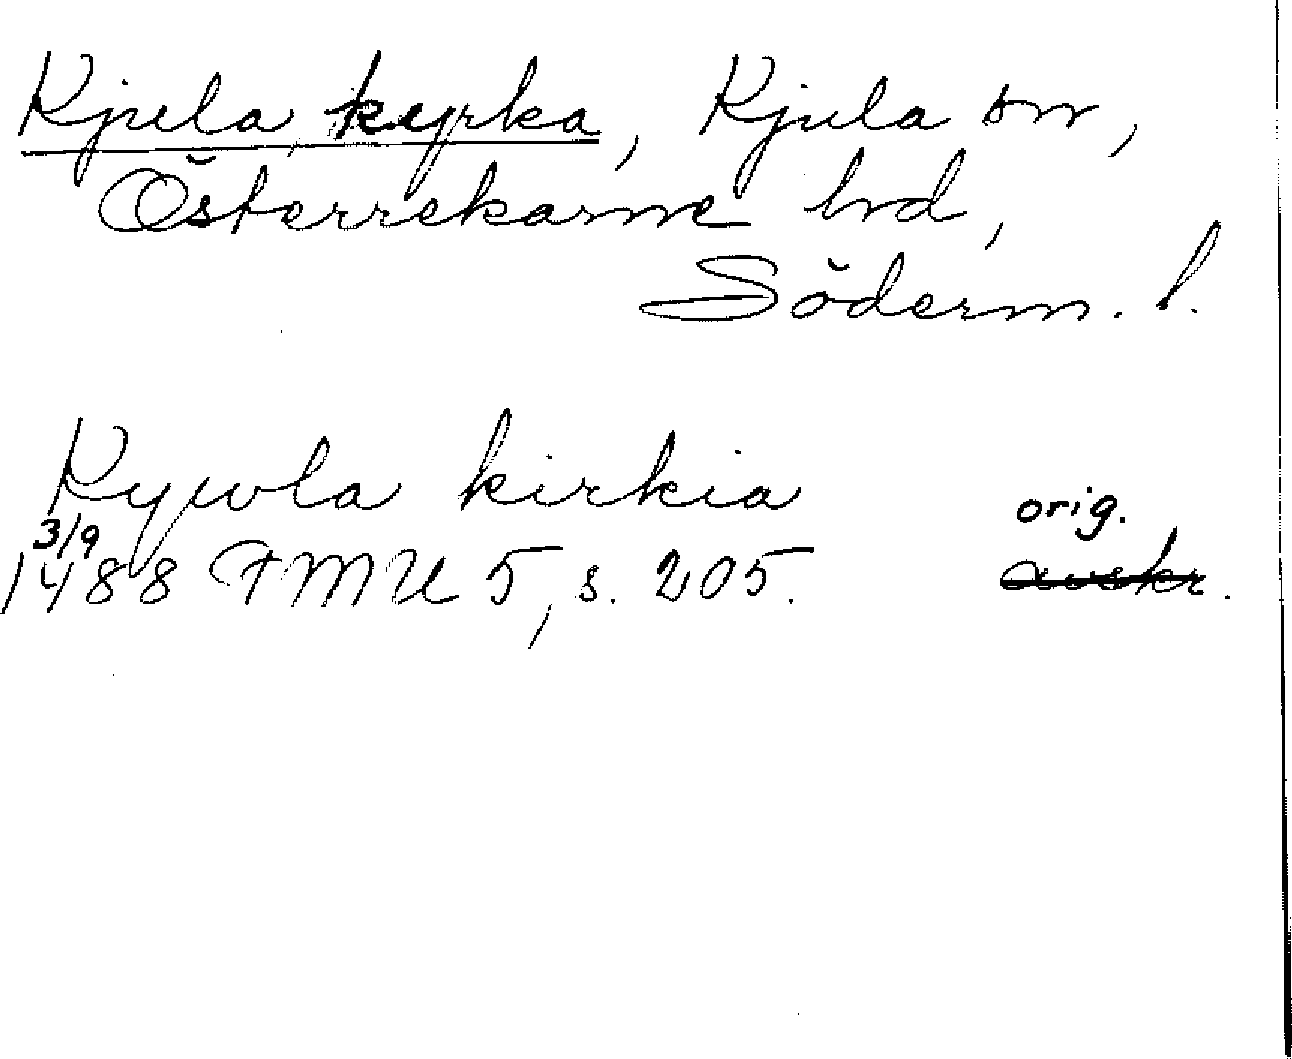 Kjula kyrka, Kjula sn,
Österrekarne hd,
Söderm. l.
Kywla kirkia
orig.
3/9
1488 FMU 5, s. 205. avskr.